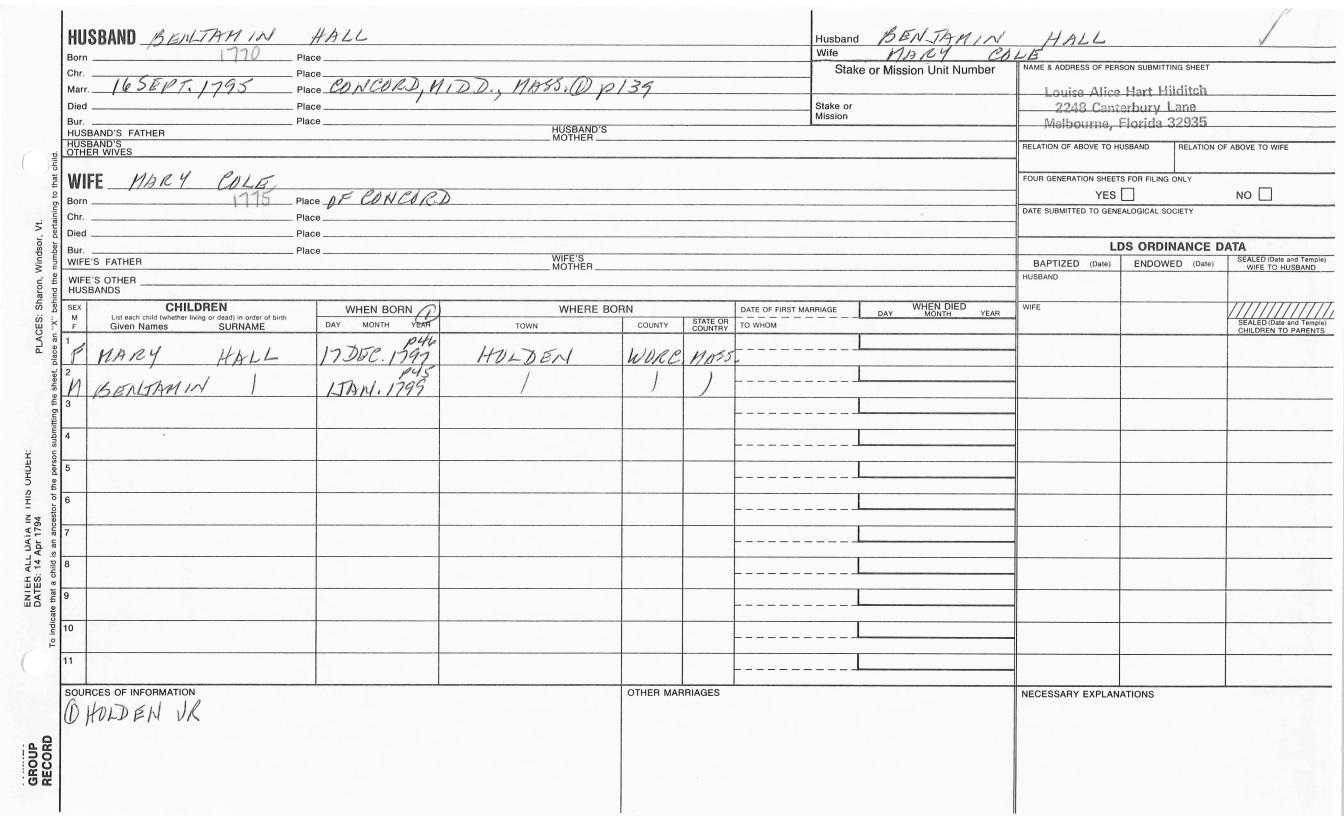 HUSBAND BENJAMIN HALL
Born 1770 Place
Chr. Place
Marr. 16 SEPT. 1795 Place CONCORD, MIDD., MASS. ① p139
Died Place
Bur. Place
HUSBAND'S FATHER HUSBAND'S MOTHER
HUSBAND'S OTHER WIVES
Husband BENJAMIN HALL
Wife MARY COLE
Stake or Mission Unit Number
Stake or Mission
NAME & ADDRESS OF PERSON SUBMITTING SHEET
Louise Alice Hart Hilditch
2248 Canterbury Lane
Melbourne, Florida 32935
RELATION OF ABOVE TO HUSBAND RELATION OF ABOVE TO WIFE
FOUR GENERATION SHEETS FOR FILING ONLY
YES NO
DATE SUBMITTED TO GENEALOGICAL SOCIETY
WIFE MARY COLE
Born 1775 Place OF CONCORD
Chr. Place
Died Place
Bur. Place
WIFE'S FATHER WIFE'S MOTHER
WIFE'S OTHER HUSBANDS
LDS ORDINANCE DATA
BAPTIZED (Date) ENDOWED (Date) SEALED (Date and Temple) WIFE TO HUSBAND
HUSBAND
WIFE
SEALED (Date and Temple) CHILDREN TO PARENTS
SEX M F
CHILDREN
List each child (whether living or dead) in order of birth
Given Names SURNAME
WHEN BORN ①
DAY MONTH YEAR
WHERE BORN
TOWN COUNTY STATE OR COUNTRY
DATE OF FIRST MARRIAGE
TO WHOM
WHEN DIED
DAY MONTH YEAR
p46
1 F MARY HALL 17 DEC. 1797 HOLDEN WORC. MASS.
p45
2 M BENJAMIN 1 JAN. 1799
3
4
5
6
7
8
9
10
11
SOURCES OF INFORMATION
① HOLDEN
OTHER MARRIAGES
NECESSARY EXPLANATIONS
PLACES: Sharon, Windsor, Vt.
ENTER ALL DATA IN THIS ORDER:
DATES: 14 Apr 1794
To indicate that a child is an ancestor of the person submitting the sheet, place an "X" behind the number pertaining to that child.
GROUP
RECORD